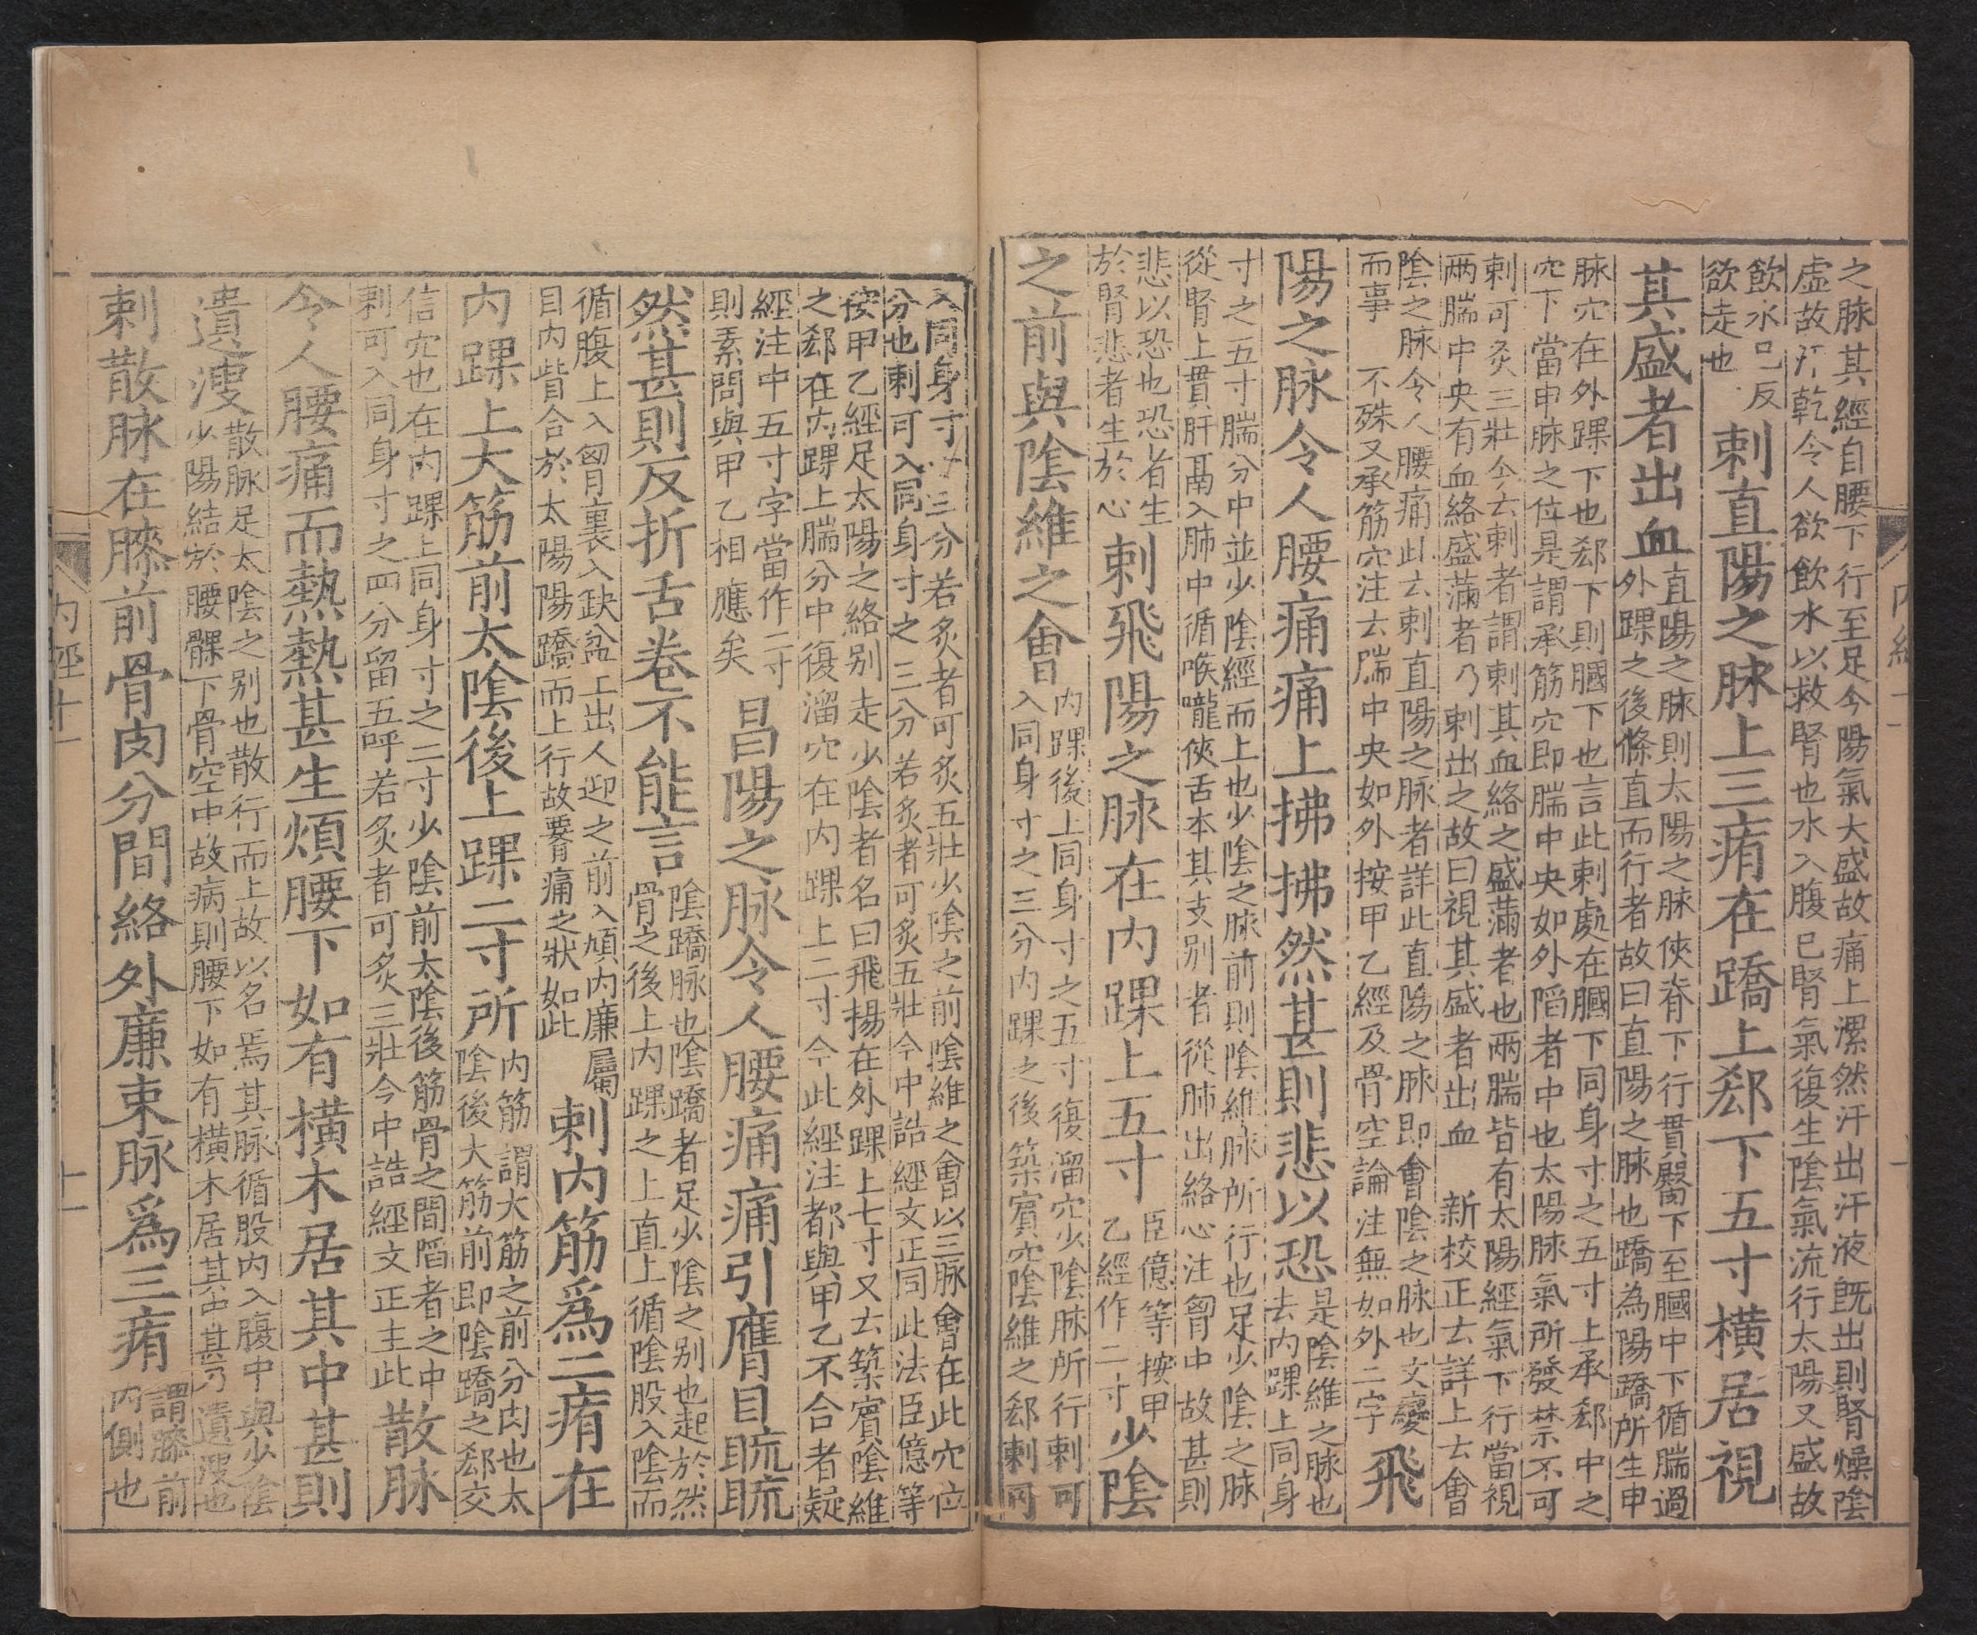 之脉其經自腰下行至足今陽氣大盛故痛上漯然汗出汗液旣出則腎燥陰
虛故汗乾令人欲飲水以救腎也水入腹已腎氣復生陰氣流行太陽又盛故
飲水已反
欲走也
刺直陽之脉上三痏在蹻上郄下五寸橫居視
其盛者出血
直陽之脉則太陽之脉俠脊下行貫臀下至膕中下循腨過
外踝之後條直而行者故曰直陽之脉也蹻為陽蹻所生申
脉穴在外踝下也郄下則膕下也言此刺處在膕下同身寸之五寸上承郄中之
穴下當申脉之位是謂承筋穴即腨中央如外陷者中也太陽脉氣所發禁不可
刺可灸三壯今云刺者謂刺其血絡之盛滿者也兩腨皆有太陽經氣下行當視
兩腨中央有血絡盛滿者乃刺出之故曰視其盛者出血 新校正云詳上云會
陰之脉令人腰痛此云刺直陽之脉者詳此直陽之脉即會陰之脉也文變
而事不殊又承筋穴注云腨中央如外按甲乙經及骨空論注無如外二字
飛
陽之脉令人腰痛痛上拂拂然甚則悲以恐
是陰維之脉也
去內踝上同身
寸之五寸腨分中並少陰經而上也少陰之脉前則陰維脉所行也足少陰之脉
從腎上貫肝鬲入肺中循喉嚨俠舌本其支别者從肺出絡心注胷中故甚則
悲以恐也恐者生
於腎悲者生於心
刺飛陽之脉在內踝上五寸
臣億等按甲
乙經作二寸
少陰
之前與陰維之會
內踝後上同身寸之五寸復溜穴少陰脉所行刺可
入同身寸之三分內踝之後築賓穴陰維之郄刺可
入同身寸之三分若灸者可灸五壯少陰之前陰維之會以三脉會在此穴位
分也刺可入同身寸之三分若灸者可灸五壯今中誥經文正同此法臣億等
按甲乙經足太陽之絡别走少陰者名曰飛揚在外踝上七寸又云築賓陰維
之郄在內踝上腨分中復溜穴在內踝上二寸今此經注都與甲乙不合者疑
經注中五寸字當作二寸
則素問與甲乙相應矣
昌陽之脉令人腰痛痛引膺目䀮䀮
然甚則反折舌卷不能言
陰蹻脉也陰蹻者足少陰之别也起於然
骨之後上內踝之上直上循陰股入陰而
循腹上入胷裏入缺盆上出人迎之前入頄內廉屬
目內眥合於太陽陽蹻而上行故腰痛之狀如此
刺內筋爲二痏在
內踝上大筋前太陰後上踝二寸所
內筋謂大筋之前分肉也太
陰後大筋前即陰蹻之郄交
信穴也在內踝上同身寸之二寸少陰前太陰後筋骨之間陷者之中
刺可入同身寸之四分留五呼若灸者可灸三壯今中誥經文正主此
散脉
令人腰痛而熱熱甚生煩腰下如有橫木居其中甚則
遺溲
散脉足太陰之别也散行而上故以名焉其脉循股內入腹中與少陰
少陽結於腰髁下骨空中故病則腰下如有橫木居其中甚乃遺溲也
刺散脉在膝前骨肉分間絡外廉束脉爲三痏
謂膝前
內側也
內經十一
十一